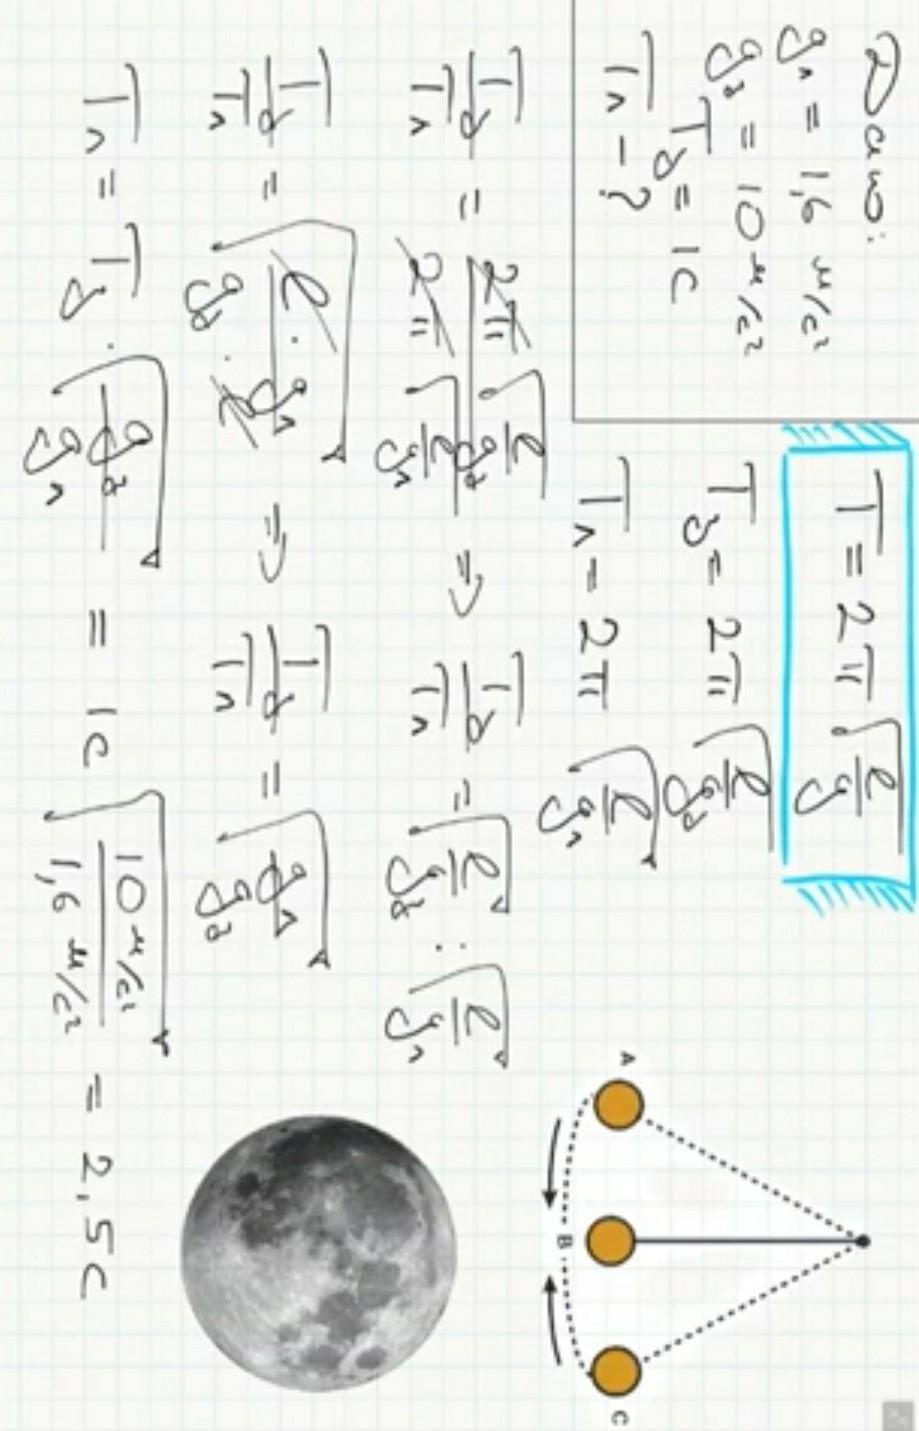 Дано:
gл = 1,6 м/с²
gз = 10 м/с²
Tз = 1с
Tл - ?
T = 2π √(l/g)
Tз = 2π √(l/gз)
Tл = 2π √(l/gл)
Tз/Tл = 2π√(l/gз) / 2π√(l/gл) => Tз/Tл = √(l/gз) : √(l/gл)
Tз/Tл = √(l · gл / gз · l) => Tз/Tл = √(gл/gз)
Tл = Tз · √(gз/gл) = 1с √(10 м/с² / 1,6 м/с²) = 2,5с
A
B
C